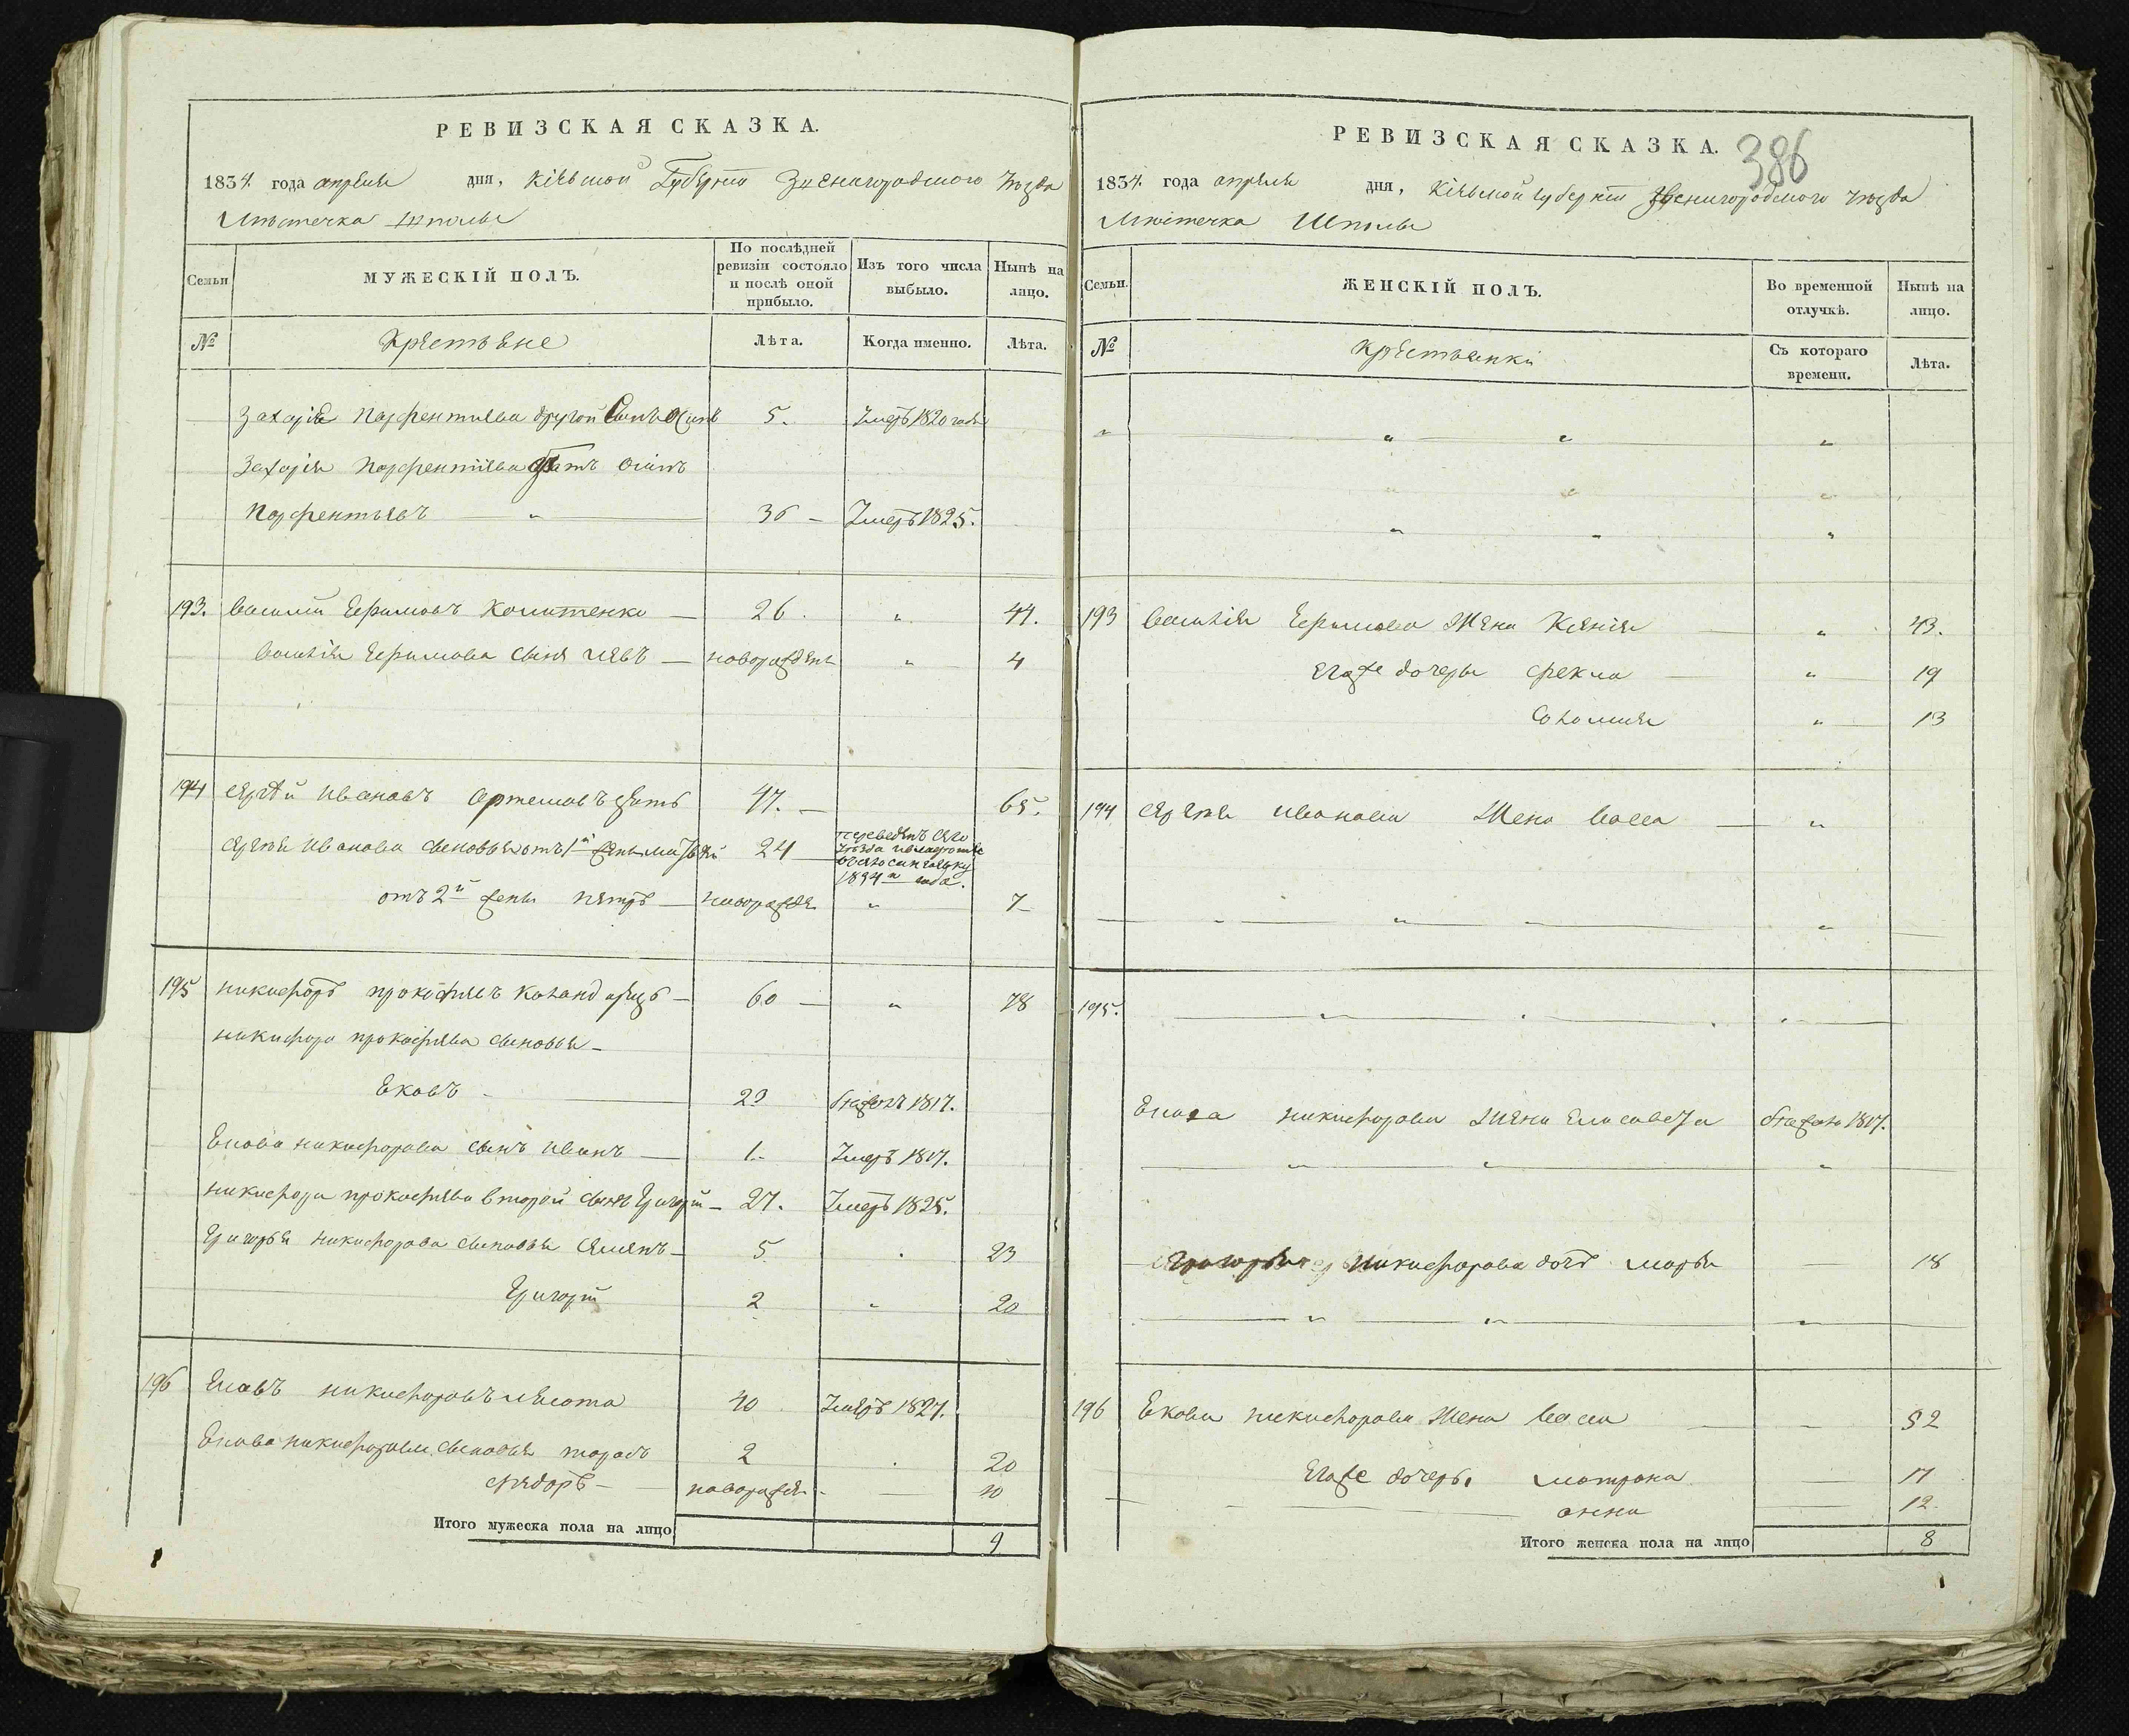 РЕВИЗСКАЯ СКАЗКА.
1834. года апреля дня, Кіевской Губерніи Звенигородского Уѣзда
Мѣстечка Шполы
Семьи
МУЖЕСКІЙ ПОЛЪ.
По послѣдней ревизіи состояло и послѣ оной прибыло.
Изъ того числа выбыло.
Нынѣ на лицо.
№ Крестьяне Лѣта. Когда именно. Лѣта.
Захарія Парфентиева другой Сынъ 5. Умеръ 1820 года
Захарія Парфентіева братъ Осипъ
Парфентьевъ 36 Умеръ 1825.
193. Василій Ефимовъ 26 " 44.
Василія Ефимова сынъ новорожден " 4
194 Сергѣй Ивановъ 47. 65.
Сергея Иванова сыновья отъ 1й жены 24
1834го года.
отъ 2й жены Петръ новорожде " 7
195 Никифоръ Прокофиевъ 60 " 78
Никифора Прокофиева сыновья
Яковъ 29 бежалъ 1817.
Якова Никифорова сынъ Иванъ 1. Умеръ 1817.
Никифора Прокофиева второй сынъ Григорій 27. Умеръ 1825.
Григорья Никифорова сыновья Семенъ 5 " 23
Григорій 2 " 20
196 Яковъ Никифоровъ 40 Умеръ 1827.
Якова Никифорова сыновья Тарасъ 2 20
Федоръ новорожде 10
Итого мужеска пола на лицо 9
386
РЕВИЗСКАЯ СКАЗКА.
1834. года апреля дня, Кіевской губерніи Звенигородского уѣзда
Мѣстечка Шполы
Семьи.
ЖЕНСКІЙ ПОЛЪ.
Во временной отлучкѣ.
Нынѣ на лицо.
№ Крестьянки Съ котораго времени. Лѣта.
193 Василія Ефимова Жена Ксенія " 43.
Егоже дочеры Фекла " 19
Соломия " 13
194 Сергея Иванова Жена Васса "
195.
Якова Никифорова Жена Елисавета бежала 1817.
Григорья Никифорова дочь Марья 18
196 Якова Никифорова Жена Васса 52
Егоже дочеры Матрона 17
Анна 12.
Итого женска пола на лицо 8